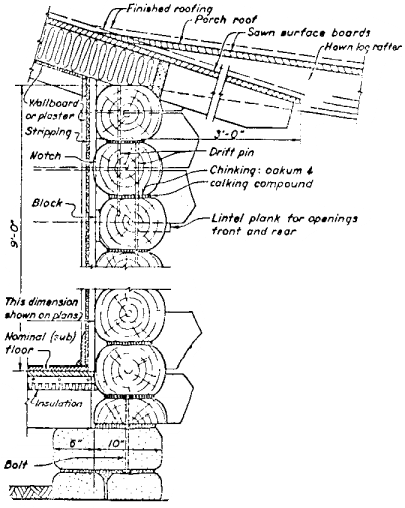 Finished roofing
Porch roof
Sawn surface boards
Hewn log rafter
Wallboard
or plaster
Stripping
3'-0"
Notch
Drift pin
Chinking: oakum &
calking compound
Block
Lintel plank for openings
front and rear
9'-0"
This dimension
shown on plans
Nominal (sub)
floor
Insulation
6"
10"
Bolt